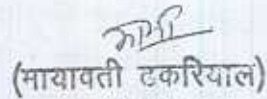 (मायावती टकरियाल)